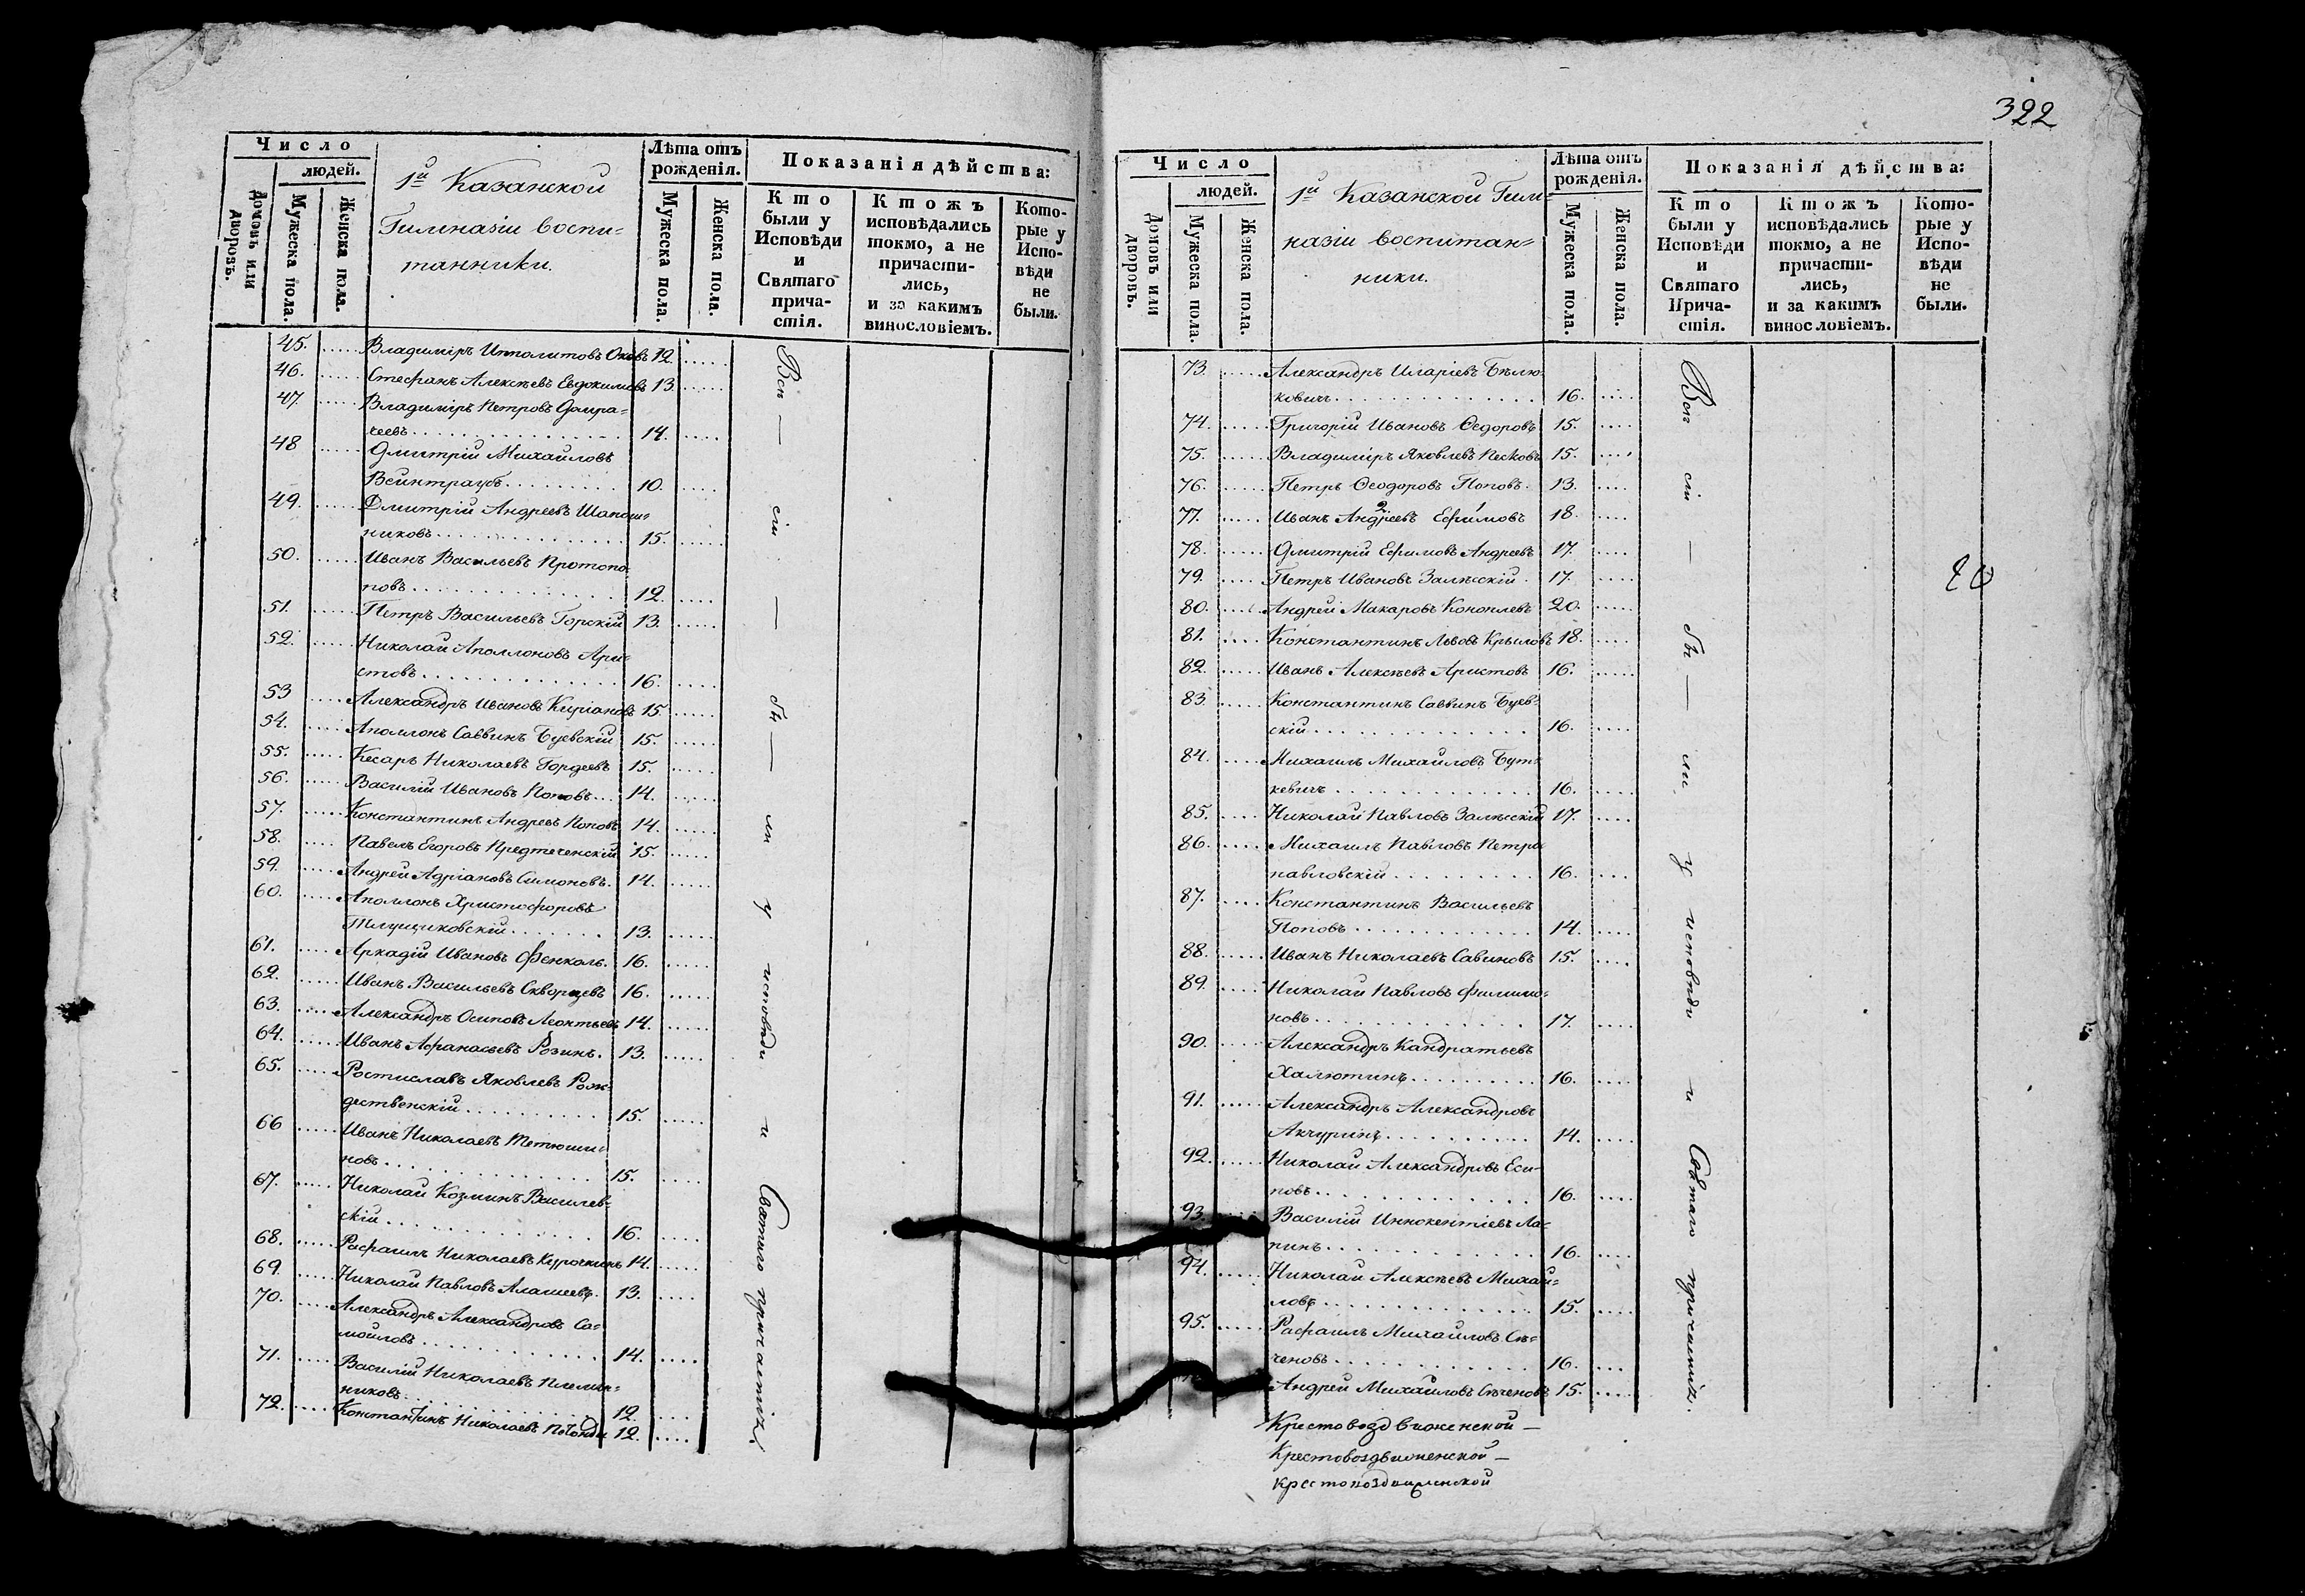 322
Число
людей.
Домовъ или дворовъ.
Мужеска пола.
Женска пола.
1й Казанской
Гимназіи воспи=
танники.
Лѣта отъ
рожденія.
Мужеска пола.
Женска пола.
Показанія дѣйства:
Кто
были у
Исповѣди
и
Святаго
прича-
стія.
Ктожъ
исповѣдались
токмо, а не
причасти-
лись,
и за какимъ
винословіемъ.
Кото-
рые у
Испо-
вѣди
не
были.
45. Владиміръ Ипполитовъ 12.
46. Стефанъ Алексѣевъ Евдокимовъ 13.
47. Владиміръ Петровъ Домра=
чеевъ 14.
48 Дмитрій Михайловъ
Вейнтраубъ 10.
49. Дмитрій Андреевъ Шапош=
никовъ 15.
50. Иванъ Васильевъ Протопо-
повъ 12.
51. Петръ Васильевъ Горскій 13.
52. Николай Аполлоновъ Ари=
стовъ 16.
53 Александръ Ивановъ Кипріановъ 15.
54. Аполлонъ Саввинъ Буевскій 15.
55. Кесарь Николаевъ Гордеевъ 15.
56. Василій Ивановъ Поповъ 14.
57. Константинъ Андреевъ Поповъ 14.
58. Павелъ Егоровъ Предтеченскій 15.
59. Андрей Адріановъ Симоновъ 14.
60. Аполлонъ Христофоровъ
13.
61. Аркадій Ивановъ Фенколь. 16.
62. Иванъ Васильевъ Скворцевъ 16.
63. Александръ Осиповъ Леонтьевъ 14.
64. Иванъ Афанасьевъ Розинъ. 13.
65. Ростиславъ Яковлевъ Рож-
дественскій 15.
66 Иванъ Николаевъ Тетюши=
новъ 15.
67. Николай Козминъ Василев-
скій 16.
68. Рафаилъ Николаевъ Курочкинъ 14.
69. Николай Павловъ Алашеевъ. 13.
70. Александръ Александровъ Са=
мойловъ 14.
71. Василій Николаевъ Племян=
никовъ 12.
72. Константинъ Николаевъ 12.
Всѣ — сіи — бы — ли у исповѣди и Святаго причастія.
Число
людей.
Домовъ или дворовъ.
Мужеска пола
Женска пола.
1й Казанской Гим=
назіи воспитан=
ники.
Лѣта отъ
рожденія.
Мужеска пола.
Женска пола.
Показанія дѣйства:
Кто
были у
Исповѣди
и
Святаго
Прича-
стія.
Ктожъ
исповѣдались
токмо, а не
причасти-
лись,
и за какимъ
винословіемъ.
Кото-
рые у
Испо-
вѣди
не
были.
73 Александръ Иларіевъ Бѣлю-
ковичъ 16.
74. Григорій Ивановъ Ѳедоровъ 15.
75. Владиміръ Яковлевъ Песковъ 15.
76. Петръ Ѳеодоровъ Поповъ 13.
77. Иванъ Андреевъ Ефимовъ 18.
78. Дмитрій Ефимовъ Андреевъ 17.
79. Петръ Ивановъ Залѣсскій 17.
80. Андрей Макаровъ Коноплевъ 20.
81. Константинъ Львовъ Крыловъ 18.
82. Иванъ Алексѣевъ Аристовъ 16.
83. Константинъ Саввинъ Буев-
скій 16.
84. Михаилъ Михайловъ Бут=
кевичъ 16.
85. Николай Павловъ Залѣсскій 17.
86. Михаилъ Павловъ Петро
павловскій 16.
87. Константинъ Васильевъ
Поповъ 14.
88. Иванъ Николаевъ Савиновъ 15.
89. Николай Павловъ Филимо=
новъ 17.
90. Александръ Кандратьевъ
Халютинъ 16.
91. Александръ Александровъ
Акчуринъ 14.
92. Николай Александровъ Еси-
повъ 16.
93. Василій Иннокентіевъ Ла=
пинъ 16.
94. Николай Алексѣевъ Михай=
ловъ 15.
95. Рафаилъ Михайловъ Сѣ=
ченовъ 16.
Андрей Михайловъ Сѣченовъ 15.
Всѣ сіи — бы — ли у исповѣди и Святаго причастія.
Крестовоздвиженской —
Крестовоздвиженской —
крестовоздвиженской